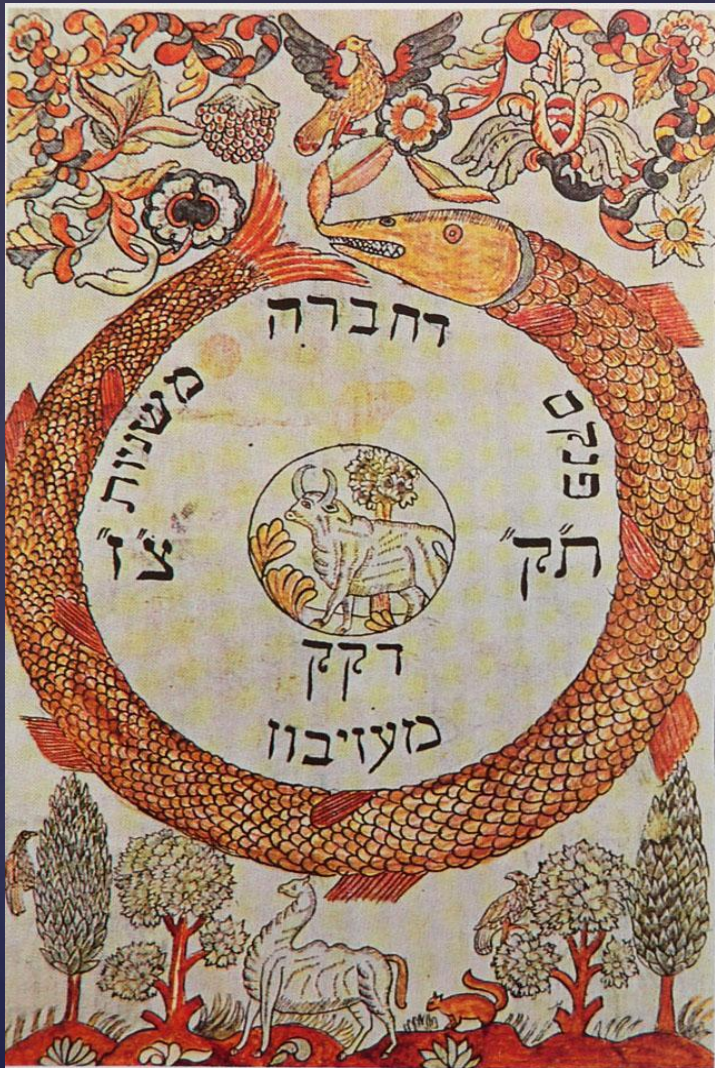 פנקס
דחברה
משניות
ת"ק"
צ"ז"
דקק
מעזיבוז